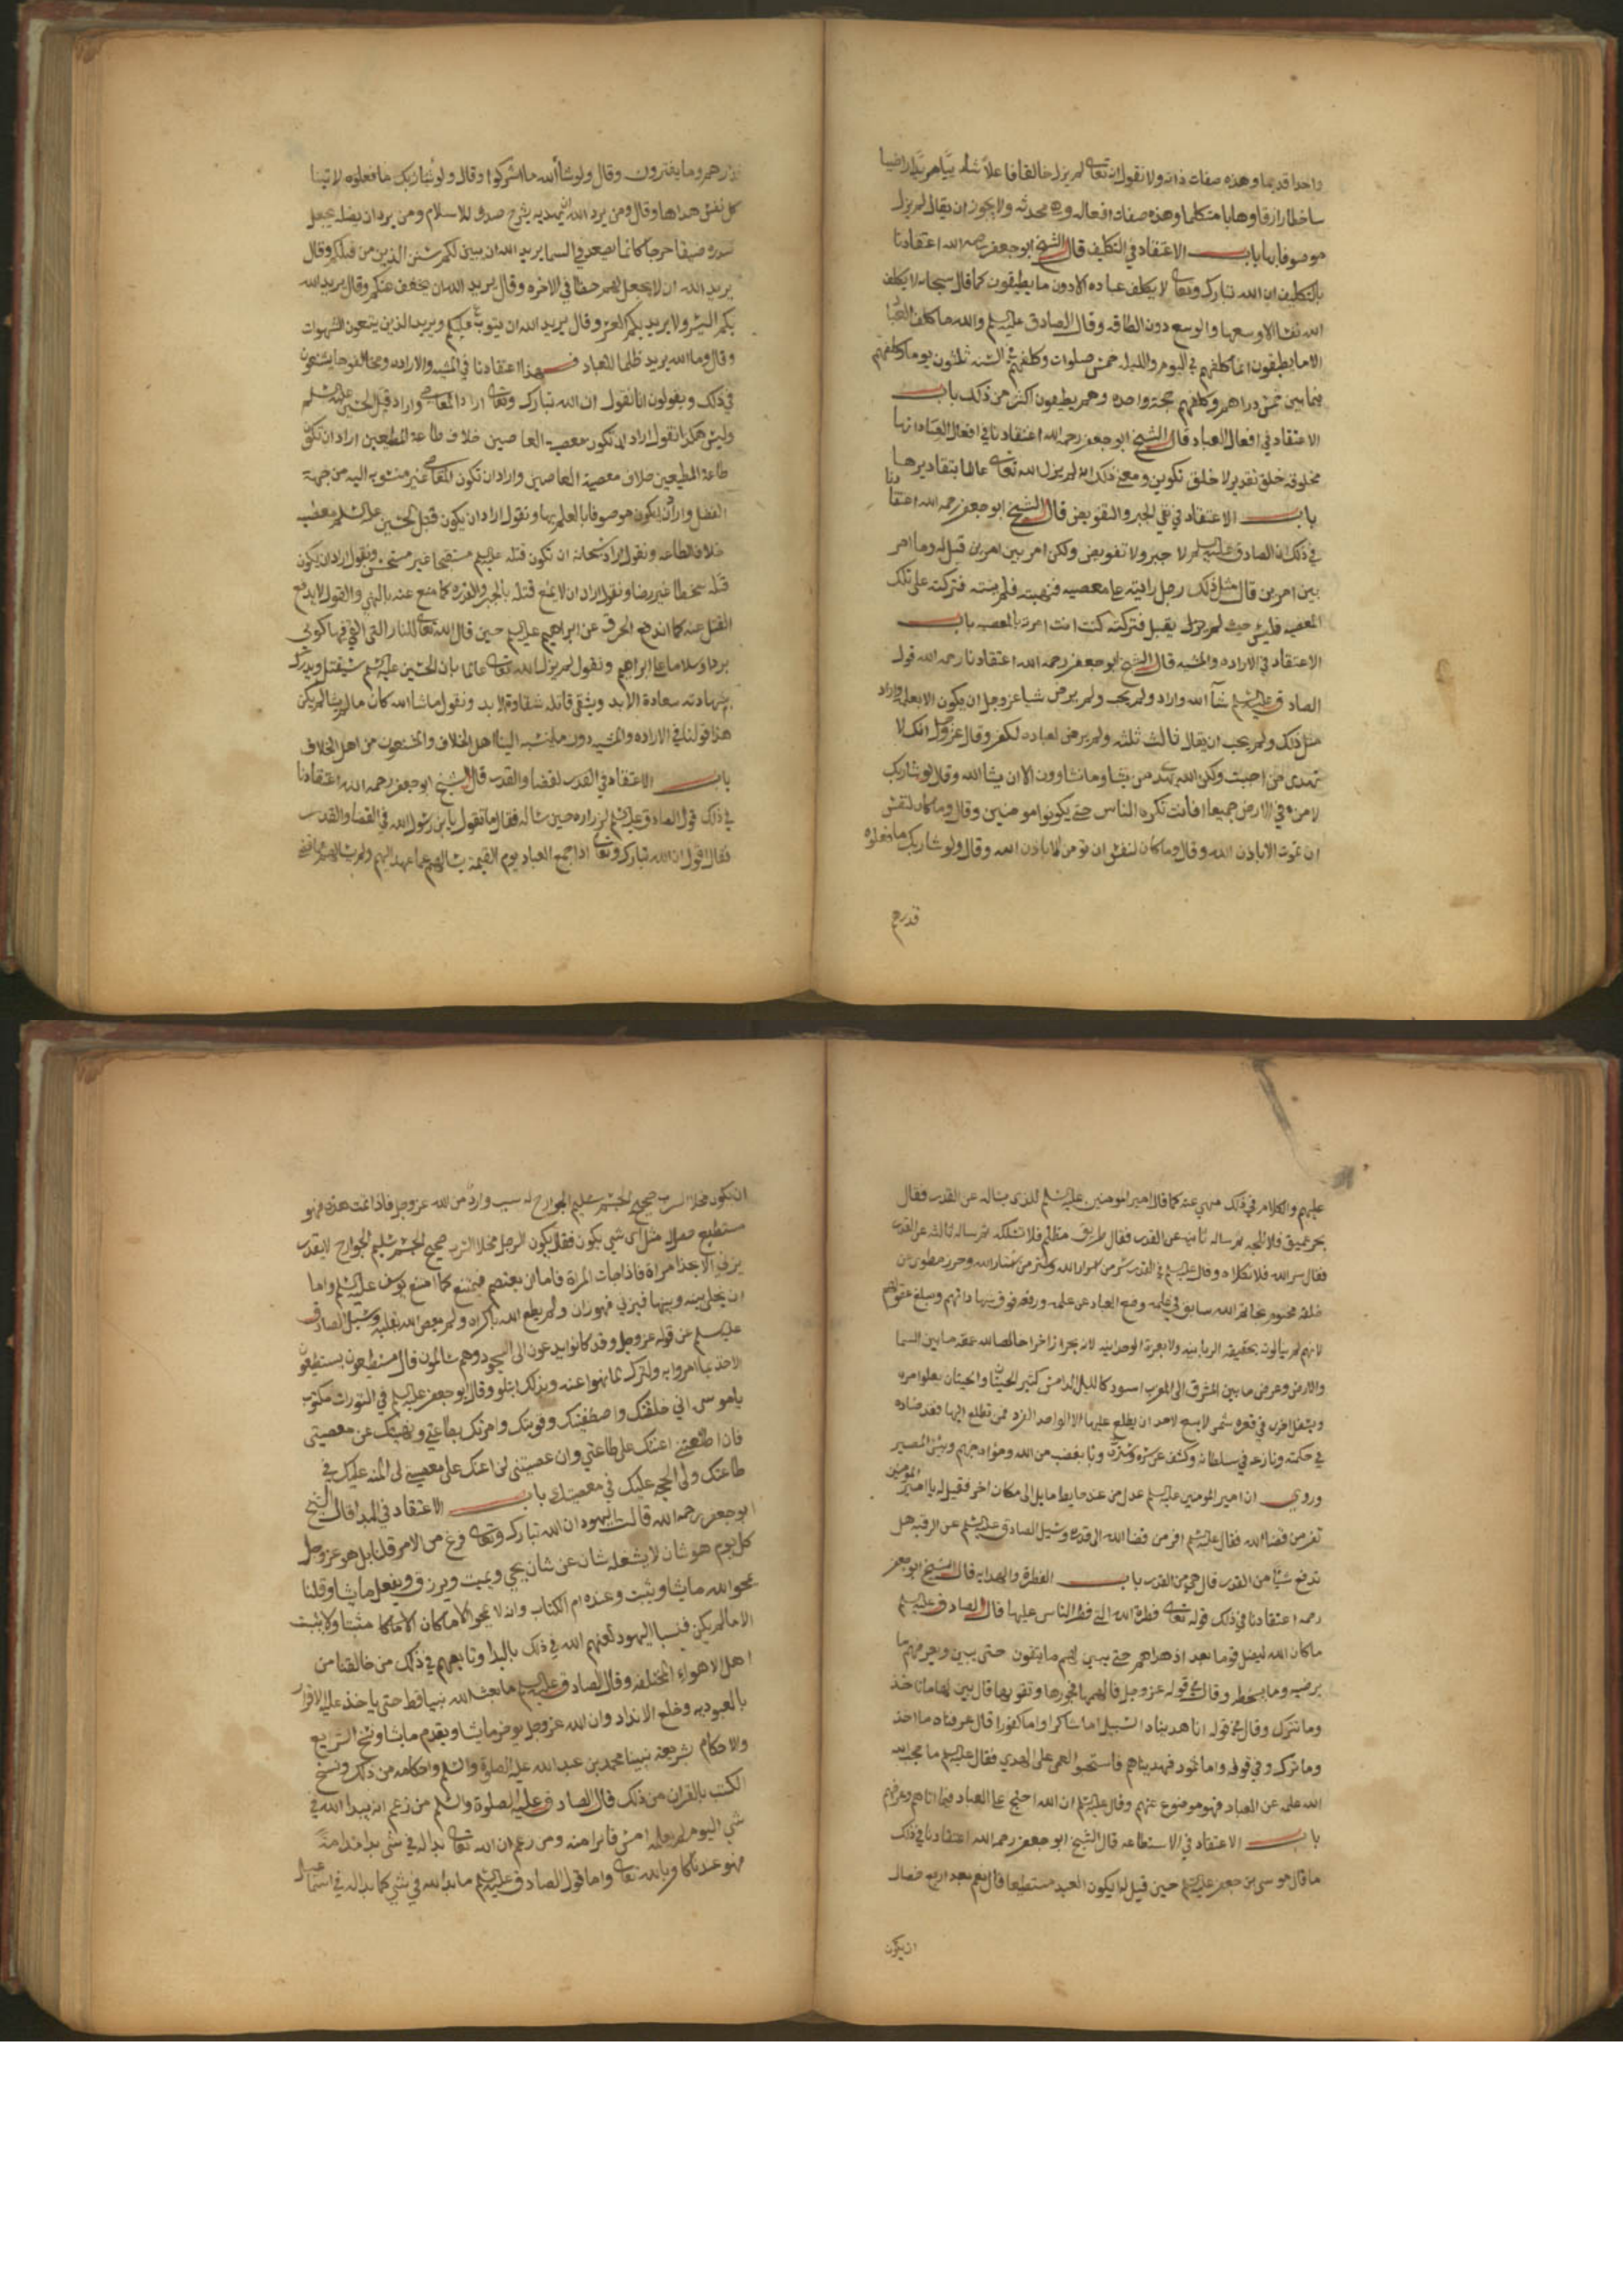 واحدا قديما وهذه صفات ذاته ولا نقول انه تعالى لم يزل خالقا فاعلا شائيا مريدا راضيا
ساخطا رازقا وهابا متكلما وهذه صفات افعاله وهي محدثه ولا يجوز ان يقال لم يزل
موصوفا بها باب الاعتقاد في التكليف قال الشيخ ابو جعفر رحمه الله اعتقادنا
بالتكليف ان الله تبارك وتعالى لا يكلف عباده الا دون ما يطيقون كما قال سبحانه لا يكلف
الله نفسا الا وسعها والوسع دون الطاقه وقال الصادق عليه السلم والله ما كلف الله العباد
الا ما يطيقون انما كلفهم في اليوم والليله خمس صلوات وكلفهم في السنه ثلثون يوما وكلفهم
فيما بين خمس دراهم وكلفهم حجة واحده وهم يطيقون اكثر من ذلك باب
الاعتقاد في افعال العباد قال الشيخ ابو جعفر رحمه الله اعتقادنا في افعال العباد انها
مخلوقه خلق تقدير لا خلق تكوين ومعنى ذلك انه لم يزل الله تعالى عالما بمقاديرها
باب الاعتقاد في نفي الجبر والتفويض قال الشيخ ابو جعفر رحمه الله اعتقادنا
في ذلك ان الصادق عليه السلم لا جبر ولا تفويض ولكن امر بين امرين قيل له وما امر
بين امرين قال مثل ذلك رجل رايته على معصيه فنهيته فلم ينته فتركته على تلك
المعصيه فليس حيث لم يزل يقبل فتركته كنت انت امرته بالمعصيه باب
الاعتقاد في الاراده والمشيه قال الشيخ ابو جعفر رحمه الله اعتقادنا رحمه الله قول
الصادق عليه السلم شآ الله واراد ولم يحب ولم يرض شيا عز وجل ان يكون الا بعلمه واراد
مثل ذلك ولم يحب ان يقال ثالث ثلثه ولم يرض لعباده لكفر وقال عز وجل انك لا
تهدى من احببت ولكن الله يهدي من يشا وما تشاوون الا ان يشا الله وقال لو شا ربك
لامن من في الارض جميعا افانت تكره الناس حتى يكونوا مومنين وقال وما كان لنفس
ان تموت الا باذن الله وقال وما كان لنفس ان تومن الا باذن الله وقال ولو شا ربك ما فعلوه
قدرهم
فذرهم وما يفترون وقال ولو شاء الله ما اشركوا وقال ولو شا ربك ما فعلوه لاتينا
كل نفس هداها وقال ومن يرد الله ان يهديه يشرح صدره للاسلام ومن يرد ان يضله يجعل
صدره ضيقا حرجا كانما يصعد في السما يريد الله ان يبين لكم سنن الذين من قبلكم وقال
يريد الله ان لا يجعل لهم حظا في الاخره وقال يريد الله ان يخفف عنكم وقال يريد الله
بكم اليسر ولا يريد بكم العسر وقال يريد الله ان يتوب عليكم ويريد الذين يتبعون الشهوات
وقال وما الله يريد ظلما للعباد فهذا اعتقادنا في المشيه والاراده ومخالفونا يشنعون
في ذلك ويقولون انا نقول ان الله تبارك وتعالى اراد المعاصي واراد قتل الحسين عليه السلم
وليس هكذا نقول اراد الله ان تكون معصية العاصين خلاف طاعة المطيعين اراد ان تكون
طاعة المطيعين خلاف معصية العاصين واراد ان تكون المعاصي غير منسوبه اليه من جهة
الفعل واراد ان يكون موصوفا بالعلم بها ونقول اراد ان يكون قتل الحسين عليه السلم معصية
خلاف الطاعه ونقول اراد سبحانه ان تكون قتله عليه السلم مستقبحا غير مستحسن ونقول اراد ان يكون
قتله سخطا غير رضا ونقول اراد ان لا يمنع قتله بالجبر والقدره كما منع عنه بالنهي والقول لا يدفع
القتل عنه كما اندفع الحرق عن ابراهيم عليه السلم حين قال الله تعالى للنار التي القي فيها كوني
بردا وسلاما على ابراهيم ونقول لم يزل الله تعالى عالما بان الحسين عليه السلم سيقتل ويدرك
بشهادته سعادة الابد ويشقى قاتله شقاوة الابد ونقول ما شا الله كان ما لم يشا لم يكن
هذا قولنا في الاراده والمشيه دون ما ينسبه الينا اهل الخلاف والمشنعون من اهل الخلاف
باب الاعتقاد في القدر لقضا والقدر قال الشيخ ابو جعفر رحمه الله اعتقادنا
في ذلك قول الصادق عليه السلم لزراره حين ساله فقال ما تقول يا بن رسول الله في القضا والقدر
فقال اقول ان الله تبارك وتعالى اذا جمع العباد يوم القيمة سالهم عما عهد اليهم ولم يسالهم عما قضى
عليهم والكلام في ذلك منهي عنه كما قال امير المومنين عليه السلم للذي ساله عن القدر فقال
بحر عميق فلا تلجه ثم ساله ثانيه عن القدر فقال طريق مظلم فلا تسلكه ثم ساله ثالثه عن القدر
فقال سر الله فلا تتكلاه وقال عليه السلم في القدر سر من اسرار الله وستر من ستار الله وحرز مطوي من
خلقه مختوم بخاتم الله سابق في علمه وضع العباد عن علمه ورفعه فوق شهاداتهم ومبلغ عقولهم
لانهم لم ينالوه بحقيقه الربانيه ولا بعزة الوحدانيه لانه بحرا زاخرا خالصا لله عمقه ما بين السما
والارض وعرض ما بين المشرق الى المغرب اسود كالليل الدامس كثير الحيات والحيتان يعلوا مره
ويسفل اخرى في قعره شمس لا ينبغي لاحد ان يطلع عليها الا الواحد الفرد فمن تطلع اليها فقد ضاده
في حكمته ونازعه في سلطانه وكشف عن ستره وسره وبآ بغضب من الله ومواه جهنم وبئس المصير
وروي ان امير المومنين عليه السلم عدل من عند حايط مايل الى مكان اخر فقيل له يا امير المومنين
تفر من قضا الله فقال عليه السلم افر من قضا الله الى قدره وسئل الصادق عليه السلم عن الرقيه هل
تدفع شيئا من القدر قال هي من القدر باب الفطرة والهدايه قال الشيخ ابو جعفر
رحمه اعتقادنا في ذلك قوله تعالى فطرة الله التي فطر الناس عليها قال الصادق عليه السلم
ما كان الله ليضل قوما بعد اذ هداهم حتى يبين لهم ما يتقون حتى يبين ويعرفهم ما
يرضيه وما يسخطه وقال في قوله عز وجل فالهمها فجورها وتقويها قال بين لها ما تاخذ
وما تترك وقال في قوله انا هديناه السبيل اما شاكرا واما كفورا قال عرفناه ما اخذ
وما ترك وفي قوله واما ثمود فهديناهم فاستحبوا العمى على الهدى فقال عليه السلم ما حجب الله
الله علمه عن العباد فهو موضوع عنهم وقال عليه السلم ان الله احتج على العباد فيما اتاهم وعرفهم
باب الاعتقاد في الاستطاعه قال الشيخ ابو جعفر رحمه الله اعتقادنا في ذلك
ما قال موسى بن جعفر عليه السلم حين قيل له ايكون العبد مستطيعا قال نعم بعد اربع خصال
ان يكون
ان يكون مخلا السرب صحيح الجسم سليم الجوارح له سبب وارد من الله عز وجل فاذا تمت هذه فهو
مستطيع فقال مثل اي شي يكون فقال يكون الرجل مخلا السرب صحيح الجسم سليم الجوارح لا يقدر
يزني الا بعد امراة فاذا جات المراة فاما ان يعتصم فيمتنع كما امتنع يوسف عليه السلم واما
ان يخلي بينه وبينها فيزني فهو زان ولم يطع الله باكراه ولم يعص الله بغلبه وسئل الصادق
عليه السلم عن قوله عز وجل وقد كانوا يدعون الى السجود وهم سالمون قال مستطيعون يستطيعون
الاخذ بما امروا به ولترك لما نهوا عنه وبذلك ابتلوا وقال ابو جعفر عليه السلم في التورات مكتوب
يا موسى اني خلقتك واصطفيتك وقويتك وامرتك بطاعتي ونهيتك عن معصيتي
فان اطعتني اعنتك على طاعتي وان عصيتني لن اعنك على معصيتي لى المنه عليك في
طاعتك ولي الحجه عليك في معصيتك باب الاعتقاد في البدا قال الشيخ
ابو جعفر رحمه الله قالت اليهود ان الله تبارك وتعالى فرغ من الامر قلنا بل هو عز وجل
كل يوم هو شان لا يشغله شان عن شان يحي ويميت ويرزق ويفعل ما يشا وقلنا
يمحوا الله ما يشا ويثبت وعنده ام الكتاب وانه لا يمحو الا ما كان الا ما كان مثبتا ولا يثبت
الا ما لم يكن فنسبا اليهود لعنهم الله في ذلك بالبدا وتابعهم في ذلك من خالفنا من
اهل الاهواء المختلفه وقال الصادق عليه السلم ما بعث الله نبيا قط حتى ياخذ عليه الاقرار
بالعبوديه وخلع الانداد وان الله عز وجل يوخر ما يشا ويقدم ما يشا ونسخ الشرايع
والاحكام بشريعة نبينا محمد بن عبد الله عليه الصلوة والسلم واحكامه من ذلك ونسخ
الكتب بالقران من ذلك قال الصادق عليه الصلوة والسلم من زعم ان يبدا الله في
شي اليوم لم يعلمه امس فابرا منه ومن زعم ان الله تعالى بدا له في شي بدا ندامة
فهو عندنا كافر بالله تعالى واما قول الصادق عليه السلم ما بدا لله في شي كما بدا له في اسماعيل